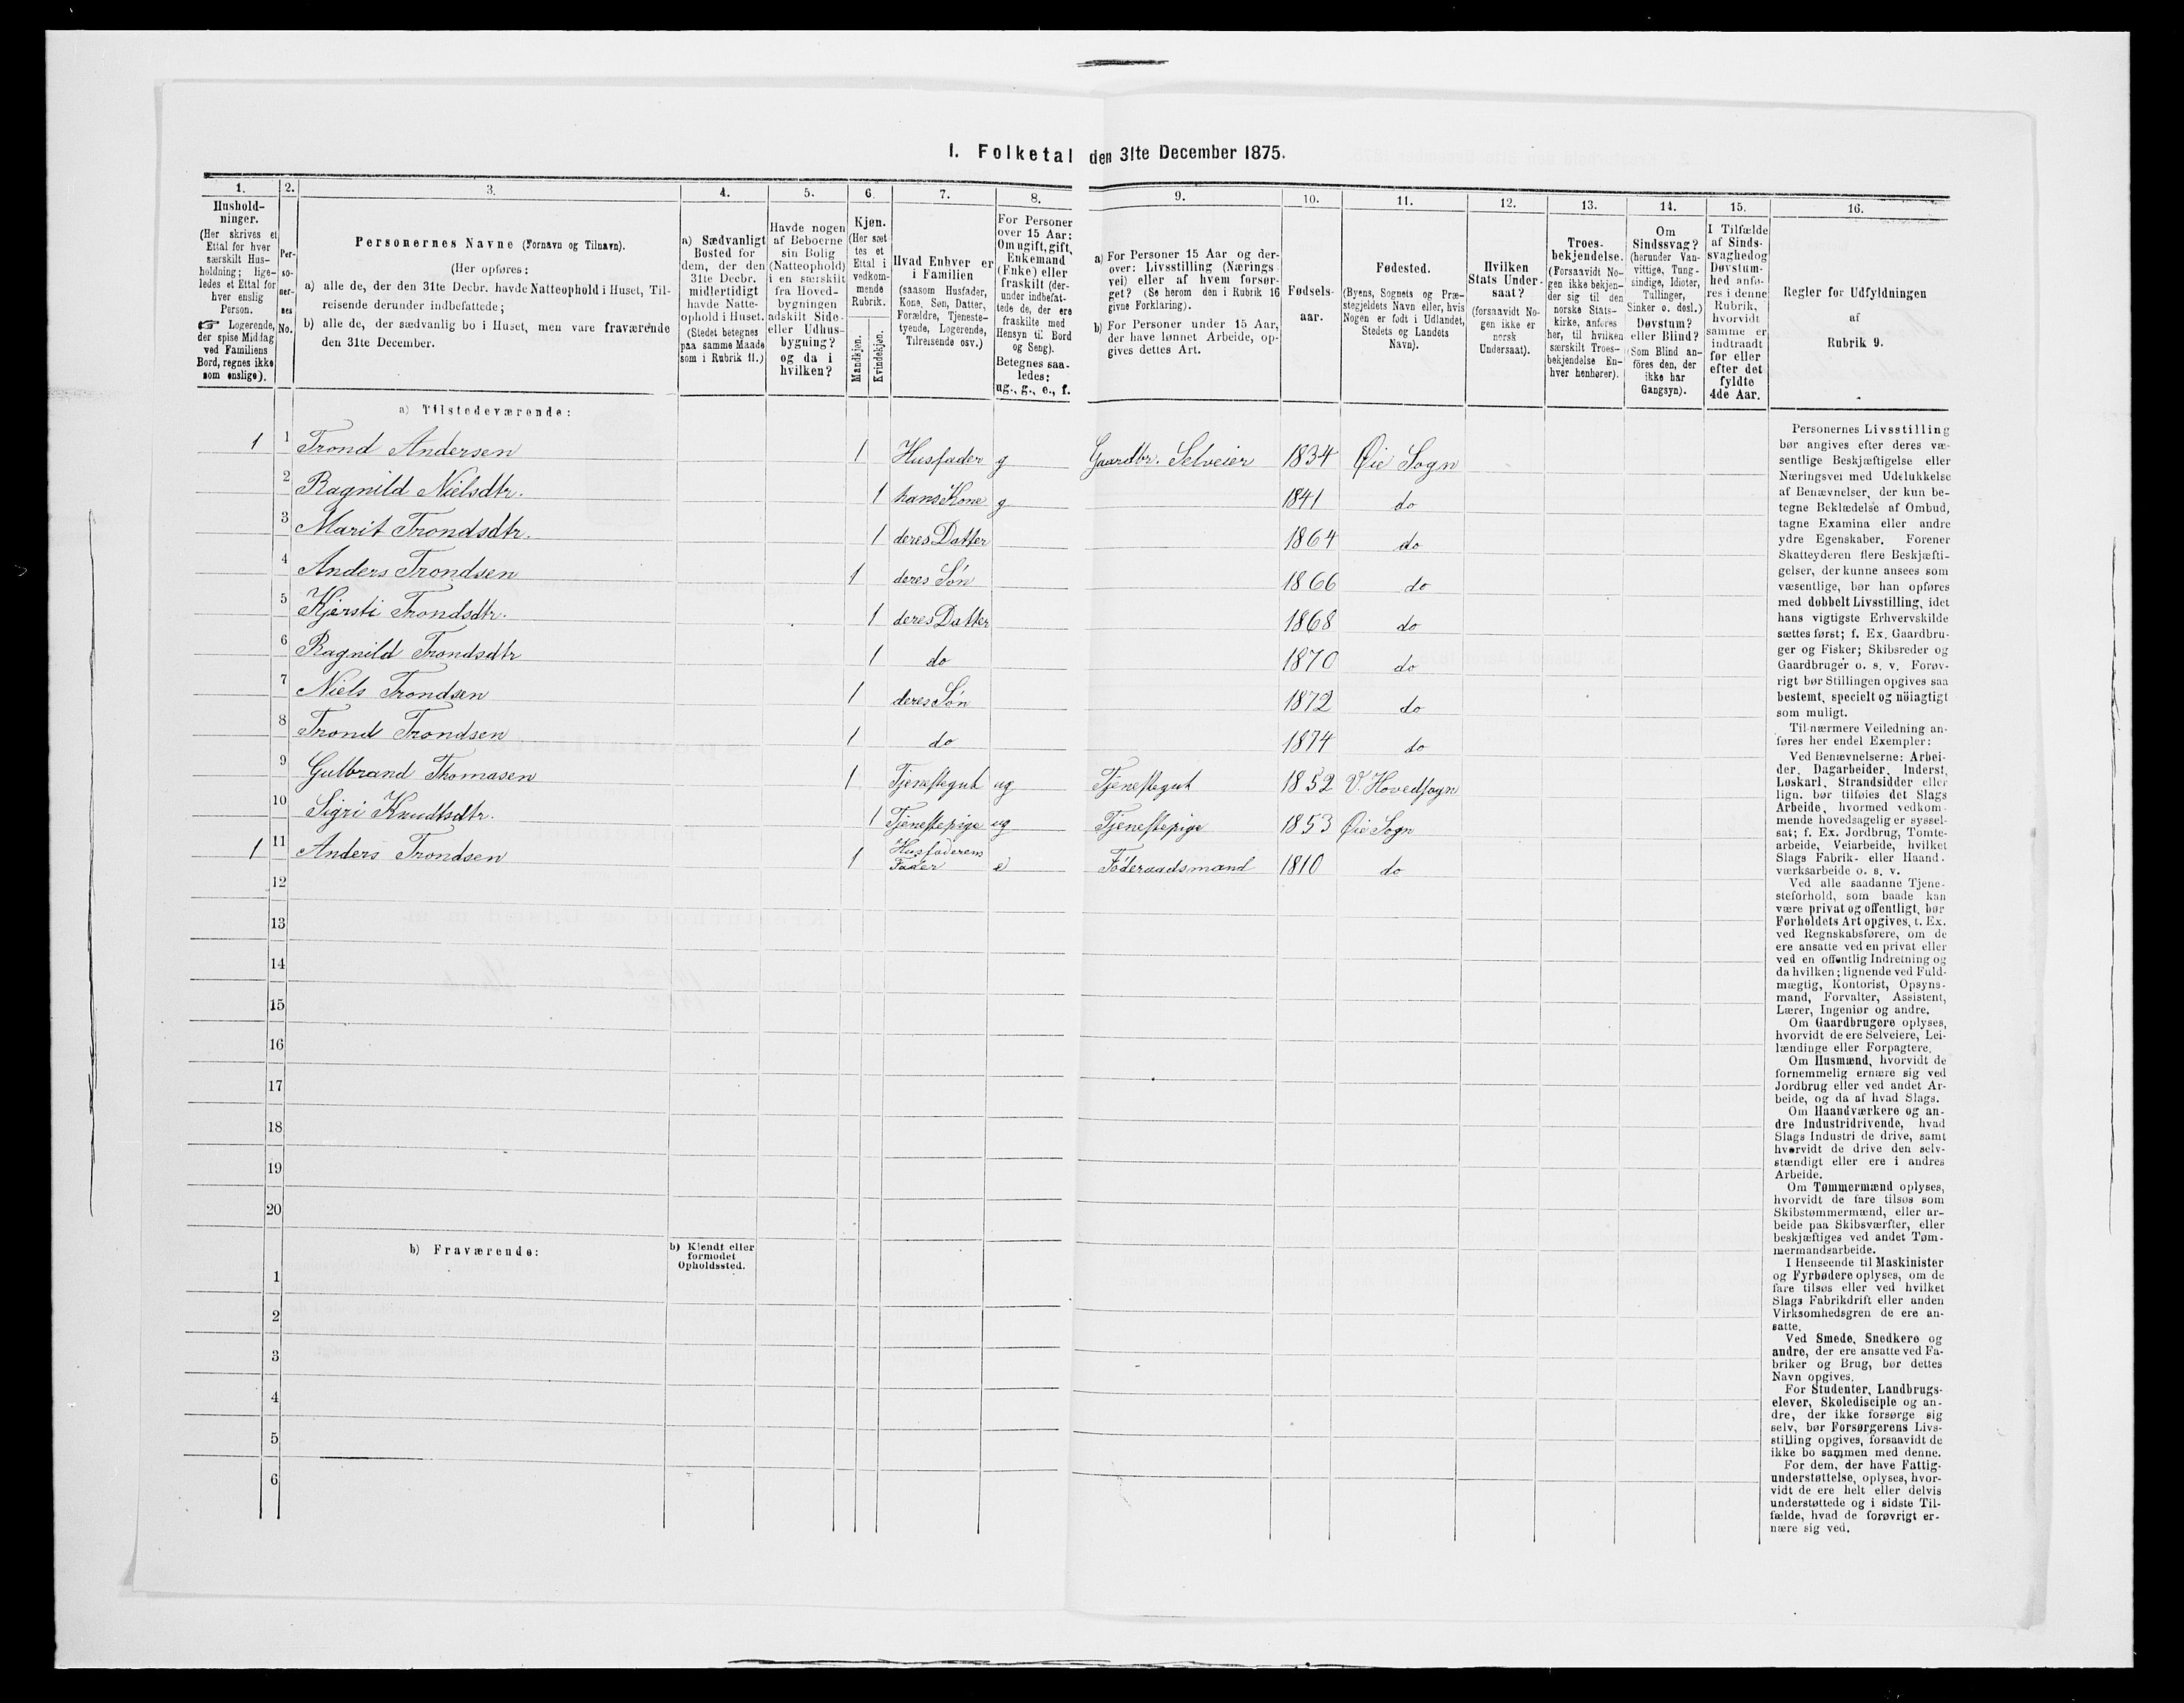 I. Folketal den 31te December 1875.
1. 2. 3. 4. 5. 6. 7. 8. 9. 10. 11. 12. 13. 14. 15. 16.
Hushold-
ninger.
(Her skrives et
Ettal for hver
særskilt Hus-
holdning; lige-
ledes et Ettal for
hver enslig
Person.
☞ Logerende,
der spise Middag
ved Familiens
Bord, regnes ikke
som enslige).
Per-
so-
ner-
nes
No.
Personernes Navne (Fornavn og Tilnavn).
(Her opføres:
a) alle de, der den 31te Decbr. havde Natteophold i Huset, Til-
reisende derunder indbefattede;
b) alle de, der sædvanlig bo i Huset, men vare fraværende
den 31te December.
a) Sædvanligt
Bosted for
dem, der den
31te Decbr.
midlertidigt
havde Natte-
ophold i Huset.
(Stedet betegnes
paa samme Maade
som i Rubrik 11.)
Havde nogen
af Beboerne
sin Bolig
(Natteophold)
i en særskilt
fra Hoved-
bygningen
adskilt Side-
eller Udhus-
bygning?
og da i
hvilken?
Kjøn.
(Her sæt
tes et
Ettal i
vedkom-
mende
Rubrik.
Mandkjøn.
Kvindekjøn.
Hvad Enhver er
i Familien
(saasom Husfader,
Kone, Søn, Datter,
Forældre, Tjeneste-
tyende, Logerende,
Tilreisende osv.)
For Personer
over 15 Aar:
Om ugift, gift,
Enkemand
(Enke) eller
fraskilt (der-
under indbefat-
tede de, der ere
fraskilte med
Hensyn til Bord
og Seng).
Betegnes saa-
ledes:
ug., g., e., f.
a) For Personer 15 Aar og der-
over: Livsstilling (Nærings
vei) eller af hvem forsør-
get? (Se herom den i Rubrik 16
givne Forklaring).
b) For Personer under 15 Aar,
der have lønnet Arbeide, op-
gives dettes Art.
Fødsels-
aar.
Fødested.
(Byens, Sognets og Præ-
stegjeldets Navn eller, hvis
Nogen er født i Udlandet,
Stedets og Landets
Navn).
Hvilken
Stats Under-
saat?
(forsaavidt No-
gen ikke er
norsk
Undersaat).
Troes-
bekjendelse.
(Forsaavidt No-
gen ikke bekjen-
der sig til den
norske Stats-
kirke, anføres
her, til hvilken
særskilt Troes-
bekjendelse En-
hver henhører).
Om
Sindssvag?
(herunder Van-
vittige, Tung-
sindige, Idioter,
Tullinger,
Sinker o. desl.)
Døvstum?
eller Blind?
(Som Blind an-
föres den, der
ikke har
Gangsyn).
I Tilfælde
af Sinds-
svaghed og
Døvstum-
hed anfø-
res i denne
Rubrik,
hvorvidt
samme er
indtraadt
før eller
efter det
fyldte
4de Aar.
Regler for Udfyldningen
af
Rubrik 9.
a) Tilstedeværende:
1 1 Trond Andersen 1 Husfader g Gaardbr. Selveier 1834 Øie Sogn
2 Ragnild Nielsdtr. 1 hans Kone g 1841 do
3 Marit Trondsdtr. 1 deres Datter 1864 do
4 Anders Trondsen 1 deres Søn 1866 do
5 Kjersti Trondsdtr. 1 deres Datter 1868 do
6 Ragnild Trondsdtr 1 do 1870 do
7 Niels Trondsen 1 deres Søn 1872 do
8 Trond Trondsen 1 do 1874 do
9 Gulbrand Thomasen 1 Tjenestegut ug Tjenestegut 1852 V. Hovedsogn
10 Sigri Knudtsdtr. 1 Tjenestepige ug Tjenestepige 1853 Øie Sogn
1 11 Anders Trondsen 1 Husfaderens Fader e Föderaadsmand 1810 do
12
13
14
15
16
17
18
19
20
b) Fraværende:
b) Kjendt eller
formodet
Opholdssted.
1
2
3
4
5
6
Personernes Livsstilling
bør angives efter deres væ-
sentlige Beskjæftigelse eller
Næringsvei med Udelukkelse
af Benævnelser, der kun be-
tegne Beklædelse af Ombud,
tagne Examina eller andre
ydre Egenskaber. Forener
Skatteyderen flere Beskjæfti-
gelser, der kunne ansees som
væsentlige, bør han opføres
med dobbelt Livsstilling, idet
hans vigtigste Erhvervskilde
sættes først; f. Ex. Gaardbru-
ger og Fisker; Skibsreder og
Gaardbruger o. s. v. Forøv-
rigt bør Stillingen opgives saa
bestemt, specielt og nöiagtigt
som muligt.
Til nærmere Veiledning an-
føres her endel Exempler:
Ved Benævnelserne: Arbei-
der, Dagarbeider, Inderst,
Løskarl, Strandsidder eller
lign. bør tilføies det Slags
Arbeide, hvormed vedkom-
mende hovedsagelig er syssel-
sat; f. Ex. Jordbrug, Tomte-
arbeide, Veiarbeide, hvilket
Slags Fabrik- eller Haand-
værksarbeide o. s. v.
Ved alle saadanne Tjene-
steforhold, som baade kan
være privat og offentligt, bør
Forholdets Art opgives, t. Ex.
ved Regnskabsførere, om de
ere ansatte ved en privat eller
ved en offentlig Indretning og
da hvilken; lignende ved Fuld-
mægtig, Kontorist, Opsyns-
mand, Forvalter, Assistent,
Lærer, Ingeniør og andre.
Om Gaardbrugere oplyses,
hvorvidt de ere Selveiere, Lei-
lændinge eller Forpagtere.
Om Husmænd, hvorvidt de
fornemmelig ernære sig ved
Jordbrug eller ved andet Ar-
beide, og da af hvad Slags.
Om Haandværkere og an-
dre Industridrivende, hvad
Slags Industri de drive, samt
hvorvidt de drive den selv-
stændigt eller ere i andres
Arbeide.
Om Tømmermænd oplyses,
hvorvidt de fare tilsøs som
Skibstømmermænd, eller ar-
beide paa Skibsværfter, eller
beskjæftiges ved andet Tøm-
mermandsarbeide.
I Henseende til Maskinister
og Fyrbødere oplyses, om de
fare tilsøs eller ved hvilket
Slags Fabrikdrift eller anden
Virksomhedsgren de ere an-
satte.
Ved Smede, Snedkere og
andre, der ere ansatte ved Fa-
briker og Brug, bør dettes
Navn opgives.
For Studenter, Landbrugs-
elever, Skoledisciple og an-
dre, der ikke forsørge sig
selv, bør Forsørgerens Livs-
stilling opgives, forsaavidt de
ikke bo sammen med denne.
For dem, der have Fattig-
understøttelse, oplyses, hvor-
vidt de ere helt eller delvis
understøttede og i sidste Til-
fælde, hvad de forøvrigt er-
nære sig ved.